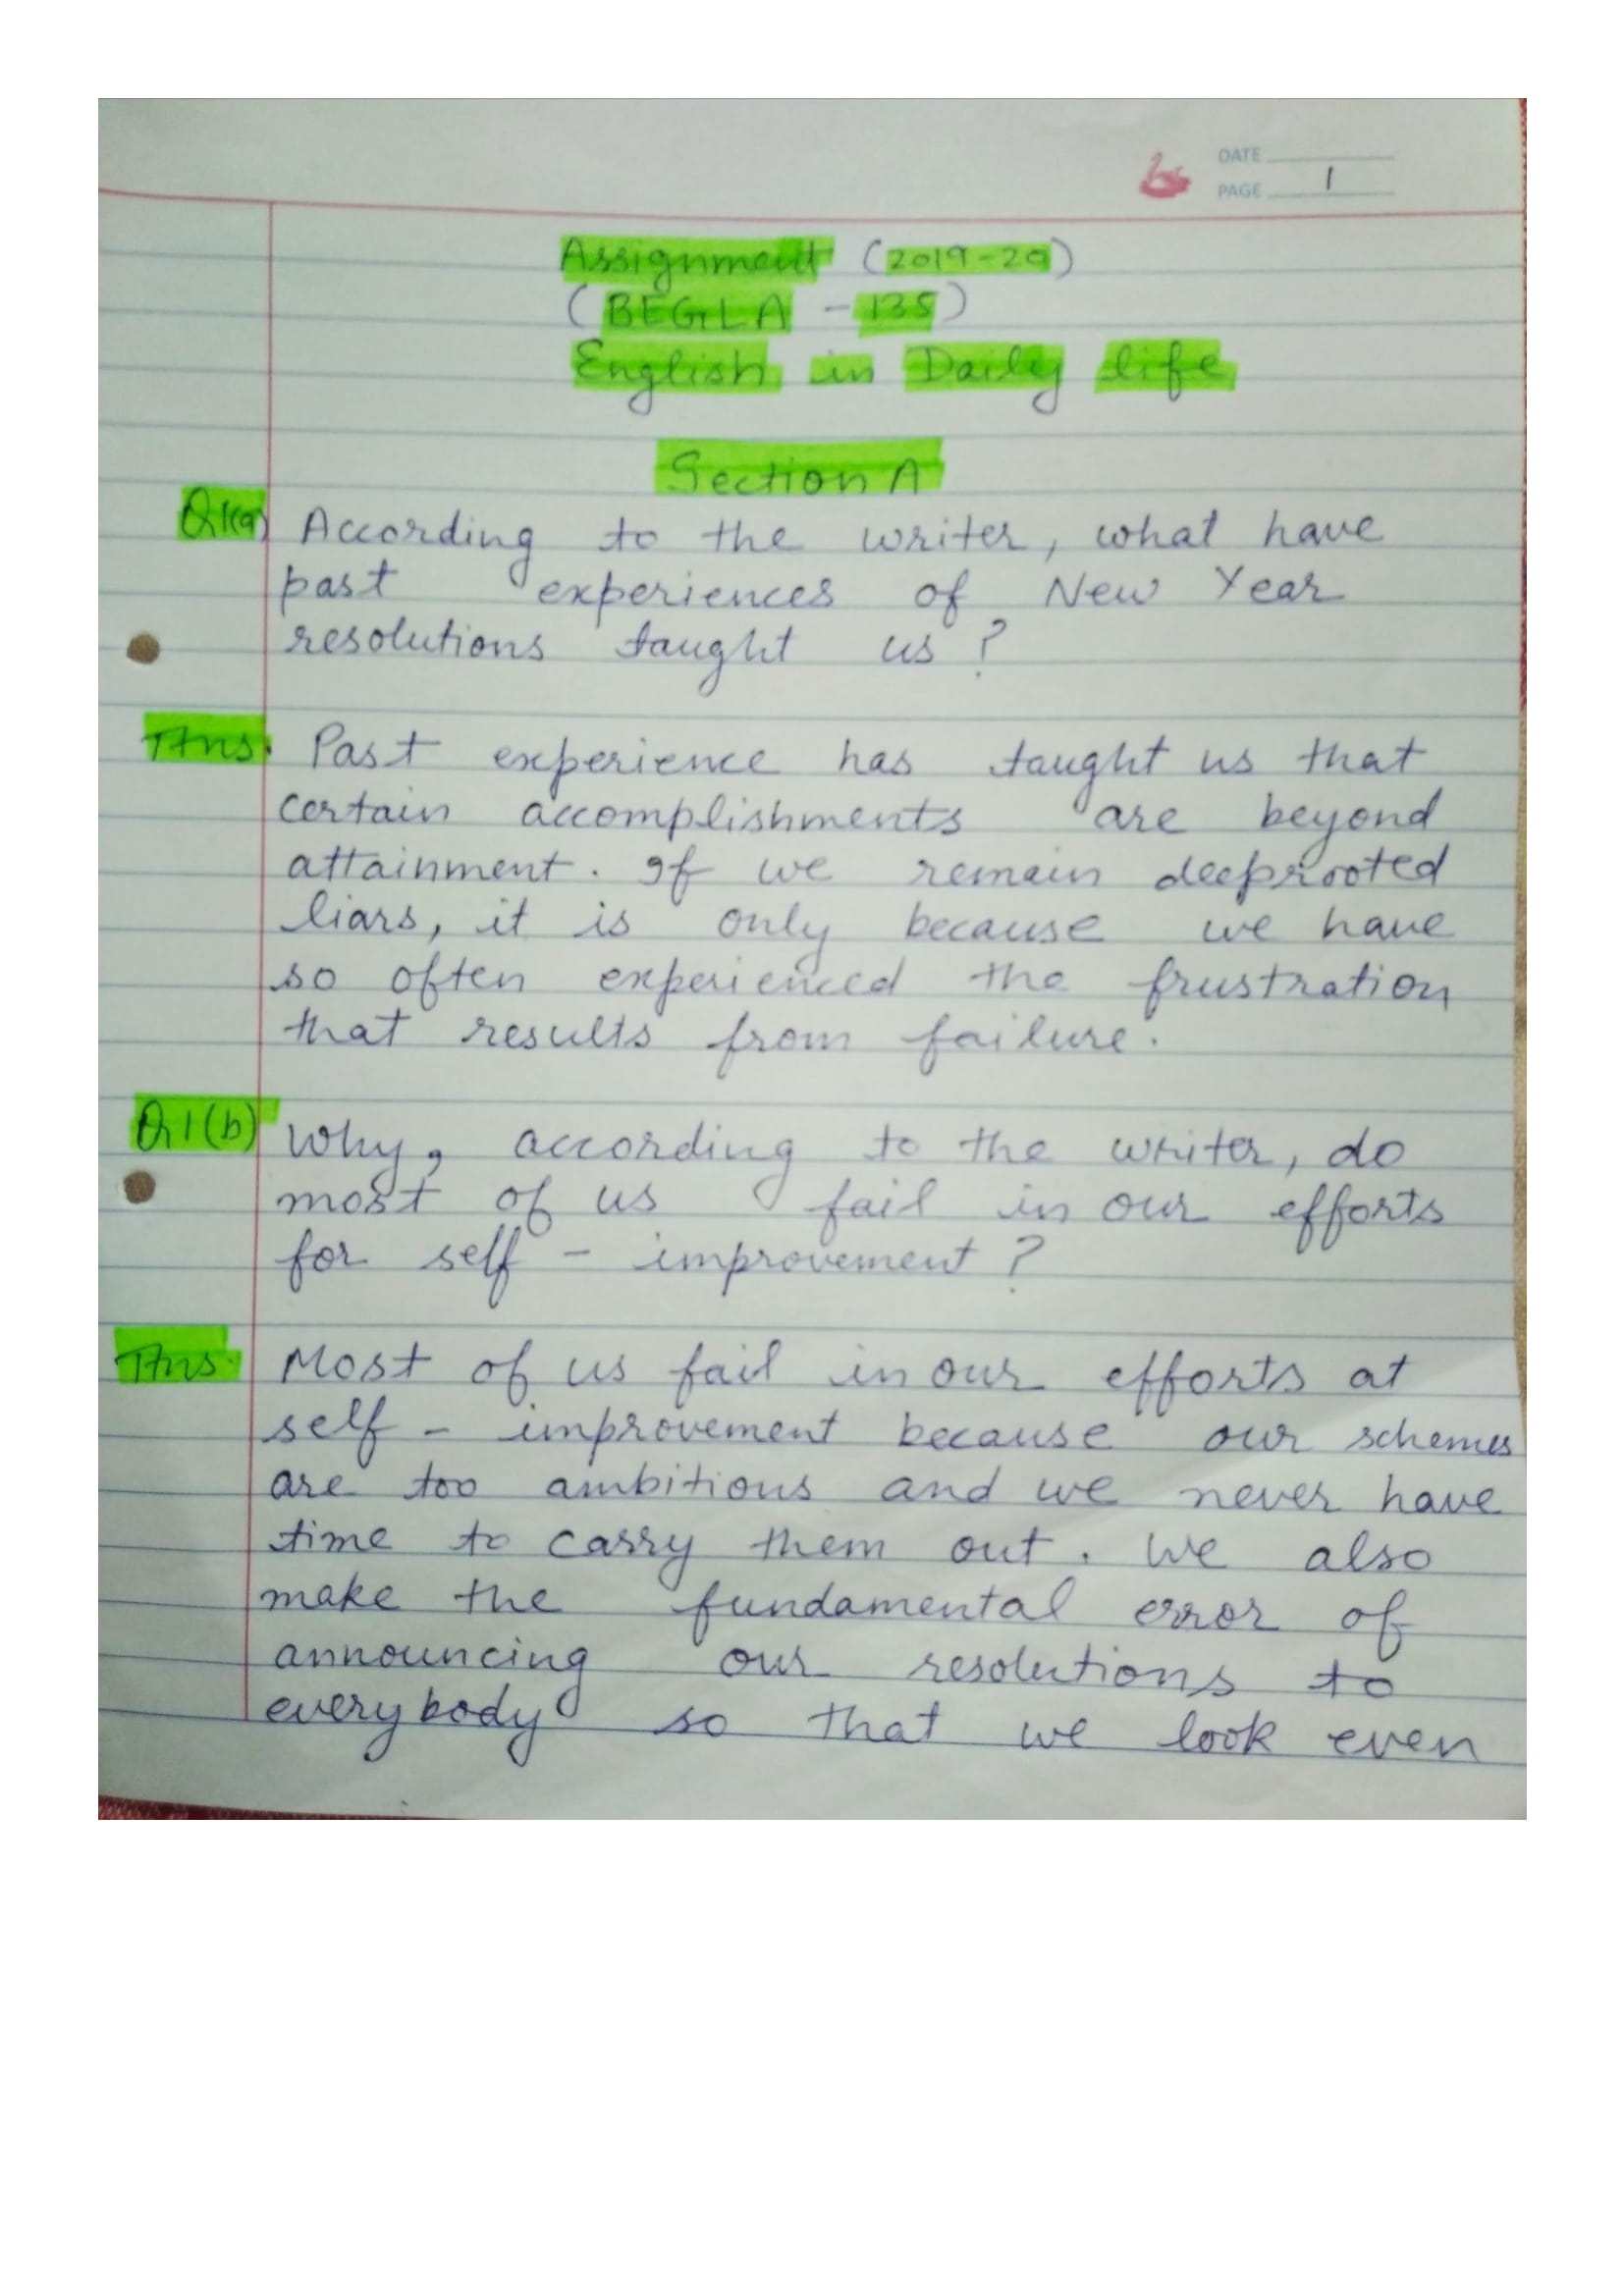 DATE
PAGE 1
Assignment (2019-20)
(BEGLA - 135)
English in Daily life
Section A
Q1(a) According to the writer, what have
past experiences of New Year
resolutions taught us ?
Ans. Past experience has taught us that
certain accomplishments are beyond
attainment. If we remain deeprooted
liars, it is only because we have
so often experienced the frustration
that results from failure.
Q1(b) Why, according to the writer, do
most of us fail in our efforts
for self - improvement ?
Ans. Most of us fail in our efforts at
self - improvement because our schemes
are too ambitious and we never have
time to carry them out. We also
make the fundamental error of
announcing our resolutions to
everybody so that we look even